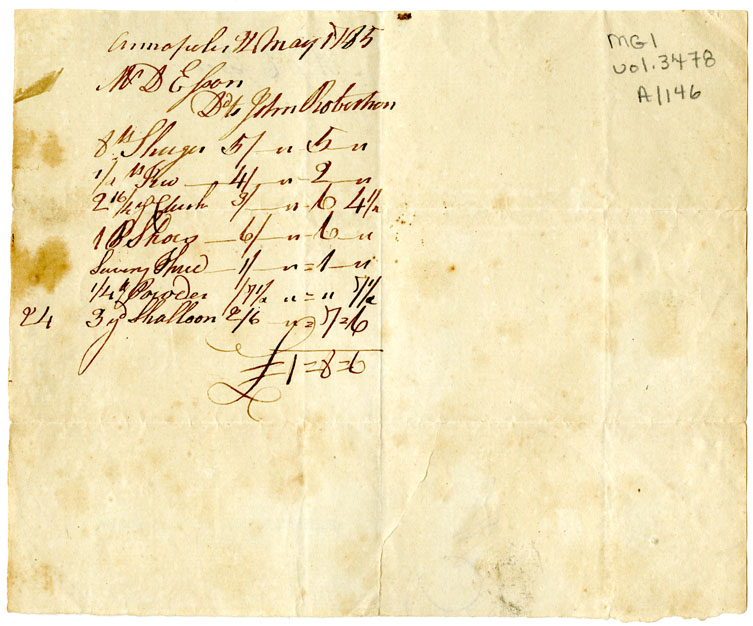 Annapolis 21 May 1785
Mr D Esson
Dr to John Robertson
8 lb Shuger 5/ " 5 "
1/2 lb Tea 4/ " 2 "
2 3/ " 6 4 1/2
1 P Shoes 6/ " 6 "
Sewing Thred 1/ " = 1 "
1/4 lb Powder /7 1/2 " = " 7 1/2
24 3 yd Shalloon 2/6 " = 7 = 6
£ 1 = 8 = 6
MG1
vol. 3478
A/146